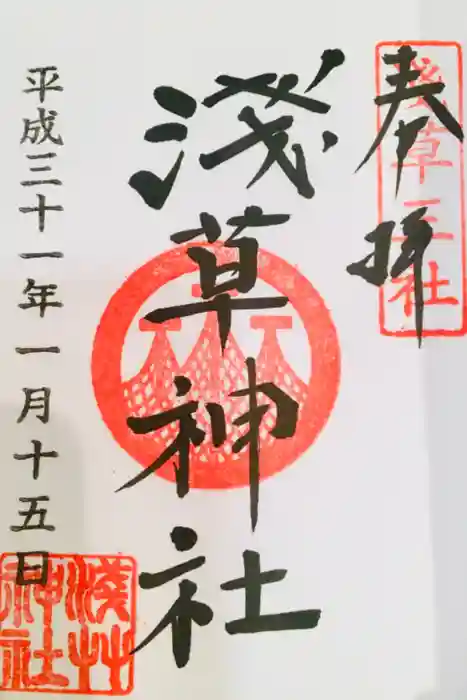 奉拝
浅草三社
淺草神社
平成三十一年一月十五日
淺艸
神社